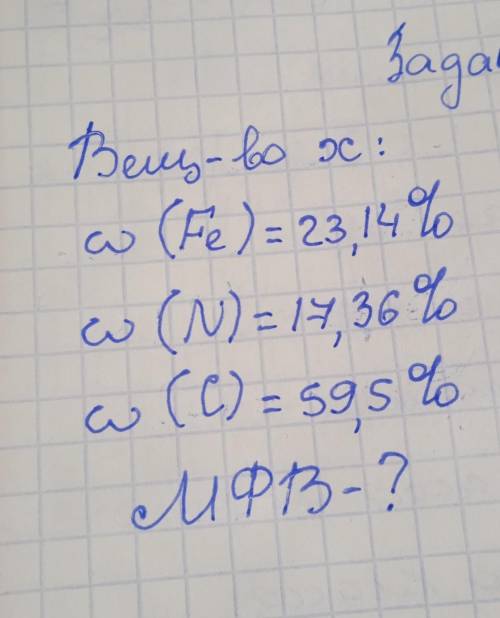 Вещ-во х:
ω (Fe) = 23,14%
ω (N) = 17,36%
ω (C) = 59,5%
МФВ - ?